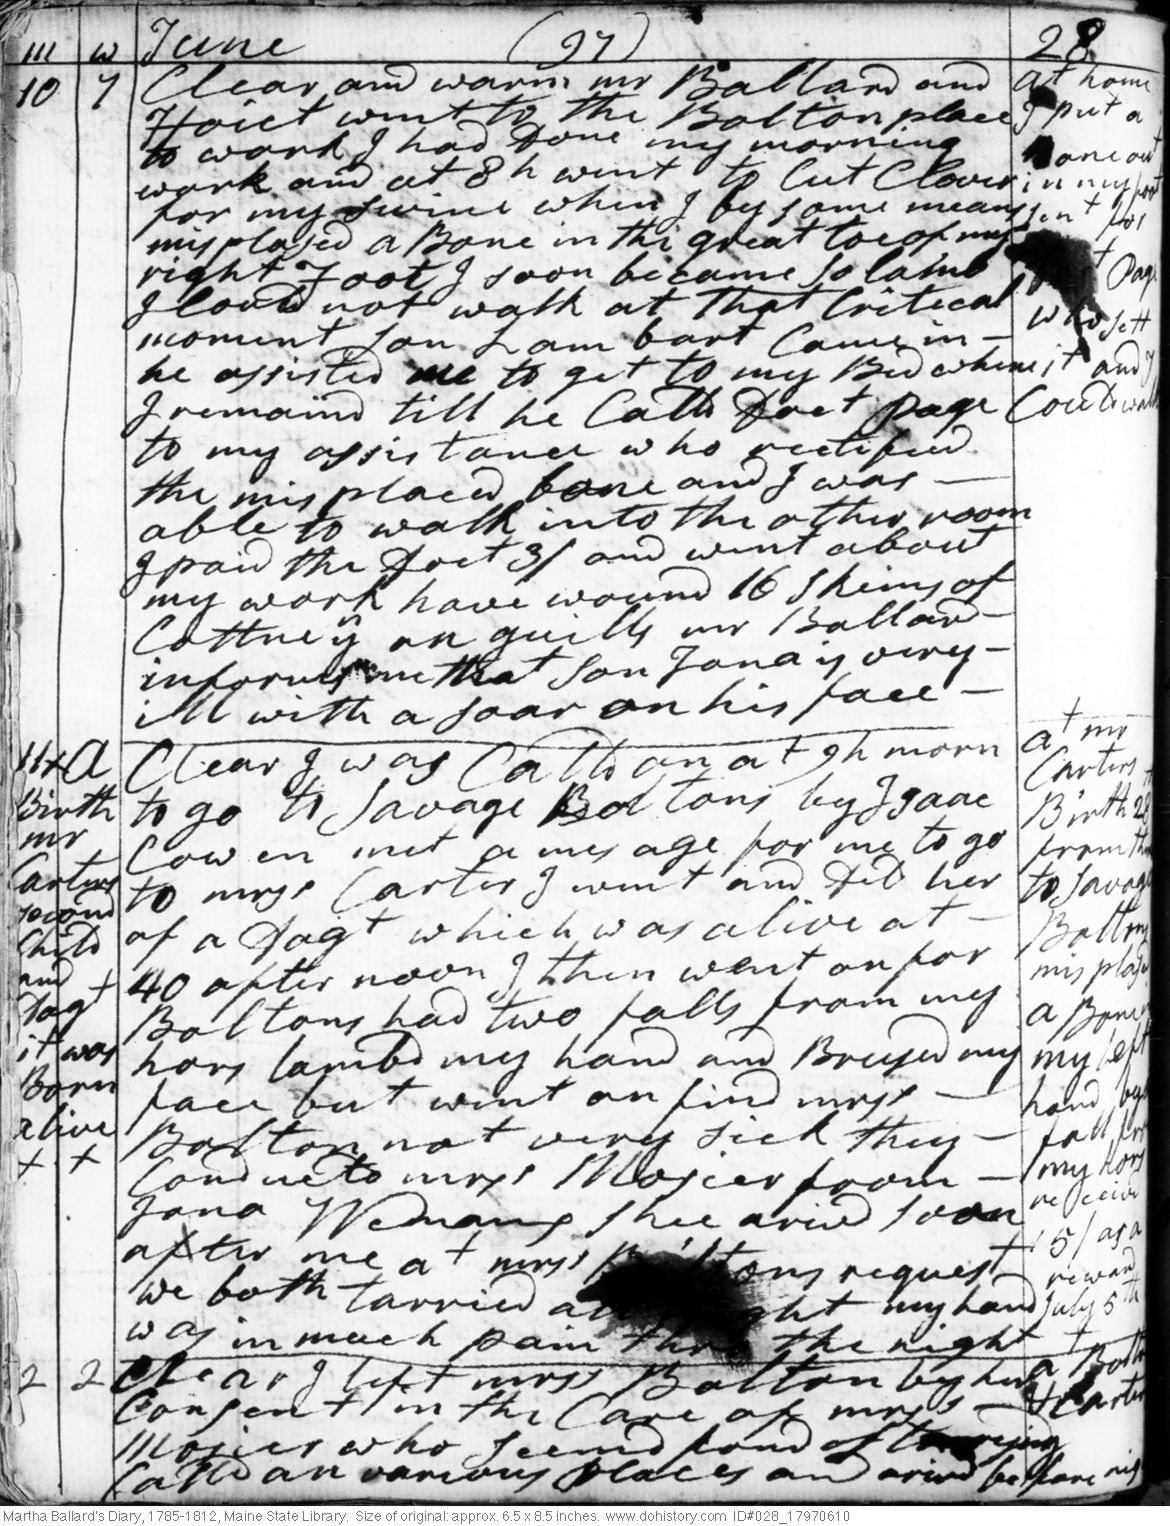 m w June (97) 28
10 7 Clear and warm mr Ballard and
Hoict went to the Bolton place
to work I had Done my morning
work and at 8 h went to Cut Clover
for my swine when I by some means
misplased a Bone in the great toe of my
right Foot I soon became so laim
I Could not walk at that Critecal
moment son Lambart Came in –
he assisted me to get to my Bed where
I remaind till he Calld Doct Page
to my assistance who rectified
the misplaced bone and I was –
able to walk into the other room
I paid the Doct 3/ and went about
my work have wound 16 skeins of
Cottney on quills mr Ballard –
informs me that son Jona is very –
ill with a soar on his face –
at home
I put a
Bone out
in my foot
sent for
Doct Page
who sett
it and I
Could walk
11 x A Clear I was Calld on at 9h morn
to go to Savage Boltons by Isaac
Cowen met a mesage for me to go
to mrss Carter I went and Deld her
of a Dagt which was alive at –
40 after noon I then went on for
Boltons had two falls from my
hors lambd my hand and Breused my
face but went on find mrss –
Bolton not very sick they –
Conducto mrss Mosier from –
Jona Wemans shee arivd soon
after me at mrss Boltons request
we both tarried all night my hand
was in much pain thro the night
Birth
mr
Carters
second
Child
and
Dagt
it was
Born
alive
x x
at mr
Carters
Birth 28
from there
to Savage
Boltons
misplast
a Bone
my left
hand by
fall from
my hors
receivd
15/ as a
reward
July 5th
2 2 Clear I left mrss Bolton by her
Consent in the Care of mrss –
Mosier who seemd fond of
Calld on various places and arivd before
at Bolton
& Carter
Martha Ballard's Diary, 1785-1812, Maine State Library. Size of original: approx. 6.5 x 8.5 inches. www.dohistory.com ID#028_17970610